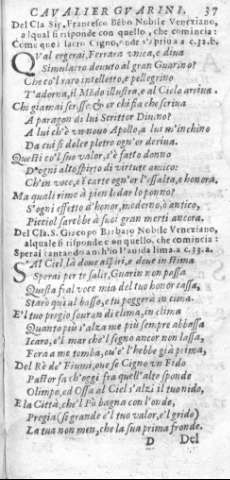 CAVALIER GVARINI. 37
Del Cla Sig. Francesco Bēbo Nobile Venetiano,
alqual si risponde con quello, che comincia:
Come que i sacro Cigno, onde s'apriua a c. 32. b.
QVal ergerai, Ferrara vnica, e diua
Simulacro deuuto al gran Guarino?
Che co'l raro intelletto, e pellegrino
T'adorna, il Mōdo illustra, e al Cielo arriua.
Chi giamai scrisse, & or chi fia che scriua
A paragon di lui Scrittor Diuino?
A lui ch'è vn nouo Apollo, a lui m'inchino
Da cui sì dolce pietro ogn'or deriua.
Questi co'l suo valor, s'è fatto donno
D'ogni alto spirto di virtute amico:
Ch'in voce, è'l carte ogn'or l'essalta, e honora.
Ma quali rime à pien di dar lo ponno?
S'ogni effetto d'honor, moderno, ò antico,
Picciol sarebbe à suoi gran merti ancora.
Del Cla. S. Giacopo Barbaro Nobile Venetiano,
al quale si risponde con quello, che comincia:
Sperai tantando anch'io l'auida lima a c. 32. a.
SAl Ciel, là doue aspiri, e doue in stima
Sperai per te salir, Guarin non possa
Questa fral voce mia del tuo honor cassa,
Starò qui al basso, e tu poggerà in cima.
E'l tuo pregio scuran di clima, in clima
Quanto più s'alza me più sempre abbassa
Icaro, e'l mar che'l segno ancor non lassa,
Fora a me tomba, cu'e' l'hebbe già prima.
Del Rè de' Fiumi, oue se Cigno vn Fido
Pastor fa ch'oggi fra quell'alte sponde
Olimpo, ed Ossa al Ciel s'alzi il tuo nido,
E la Città, che'l Pò bagna con l'onde,
Pregia (sì grande è'l tuo valor, e'l grido)
La tua non men, che la sua prima fronde.
D Del